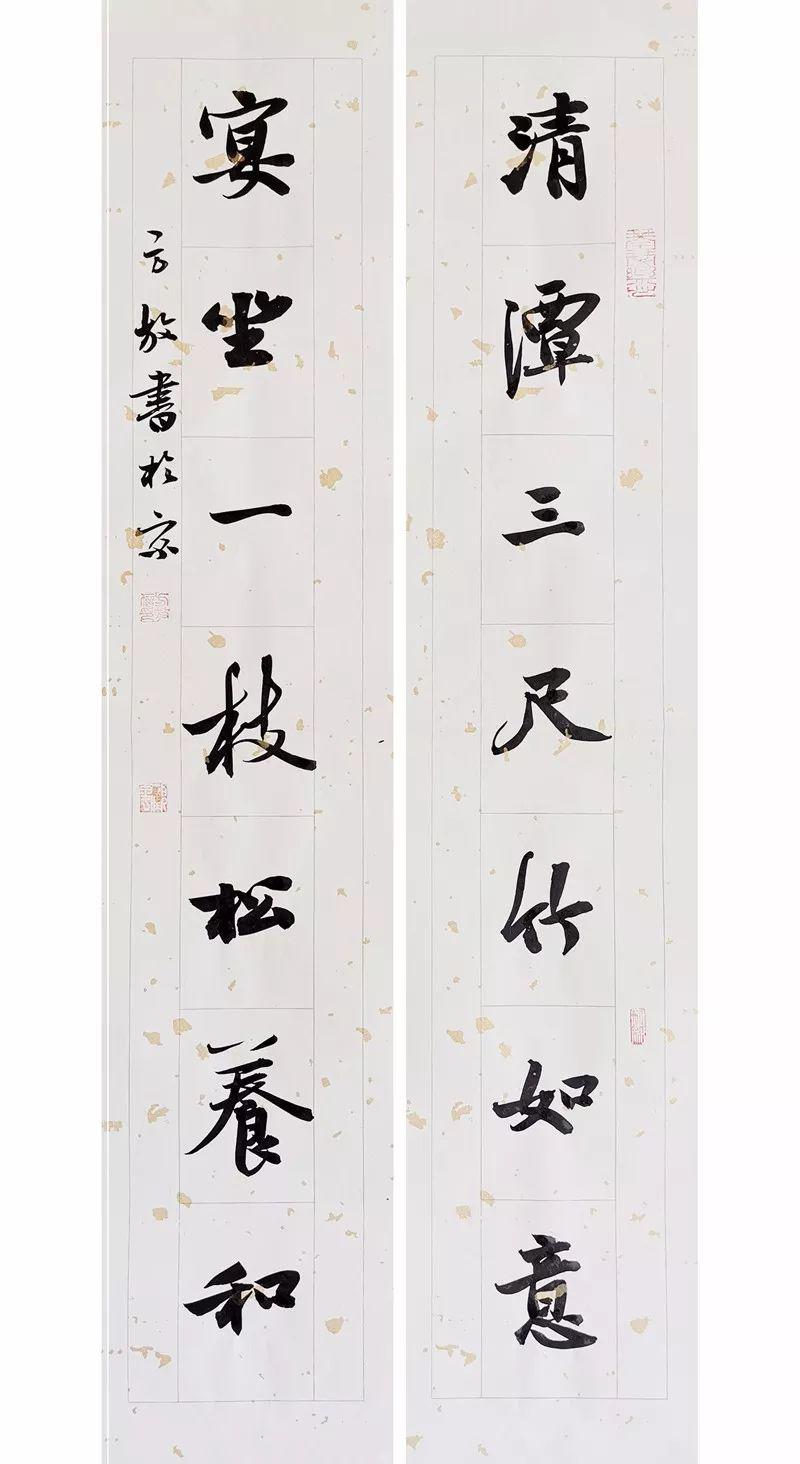 清潭三尺竹如意
宴坐一枝松養和
方放書於京